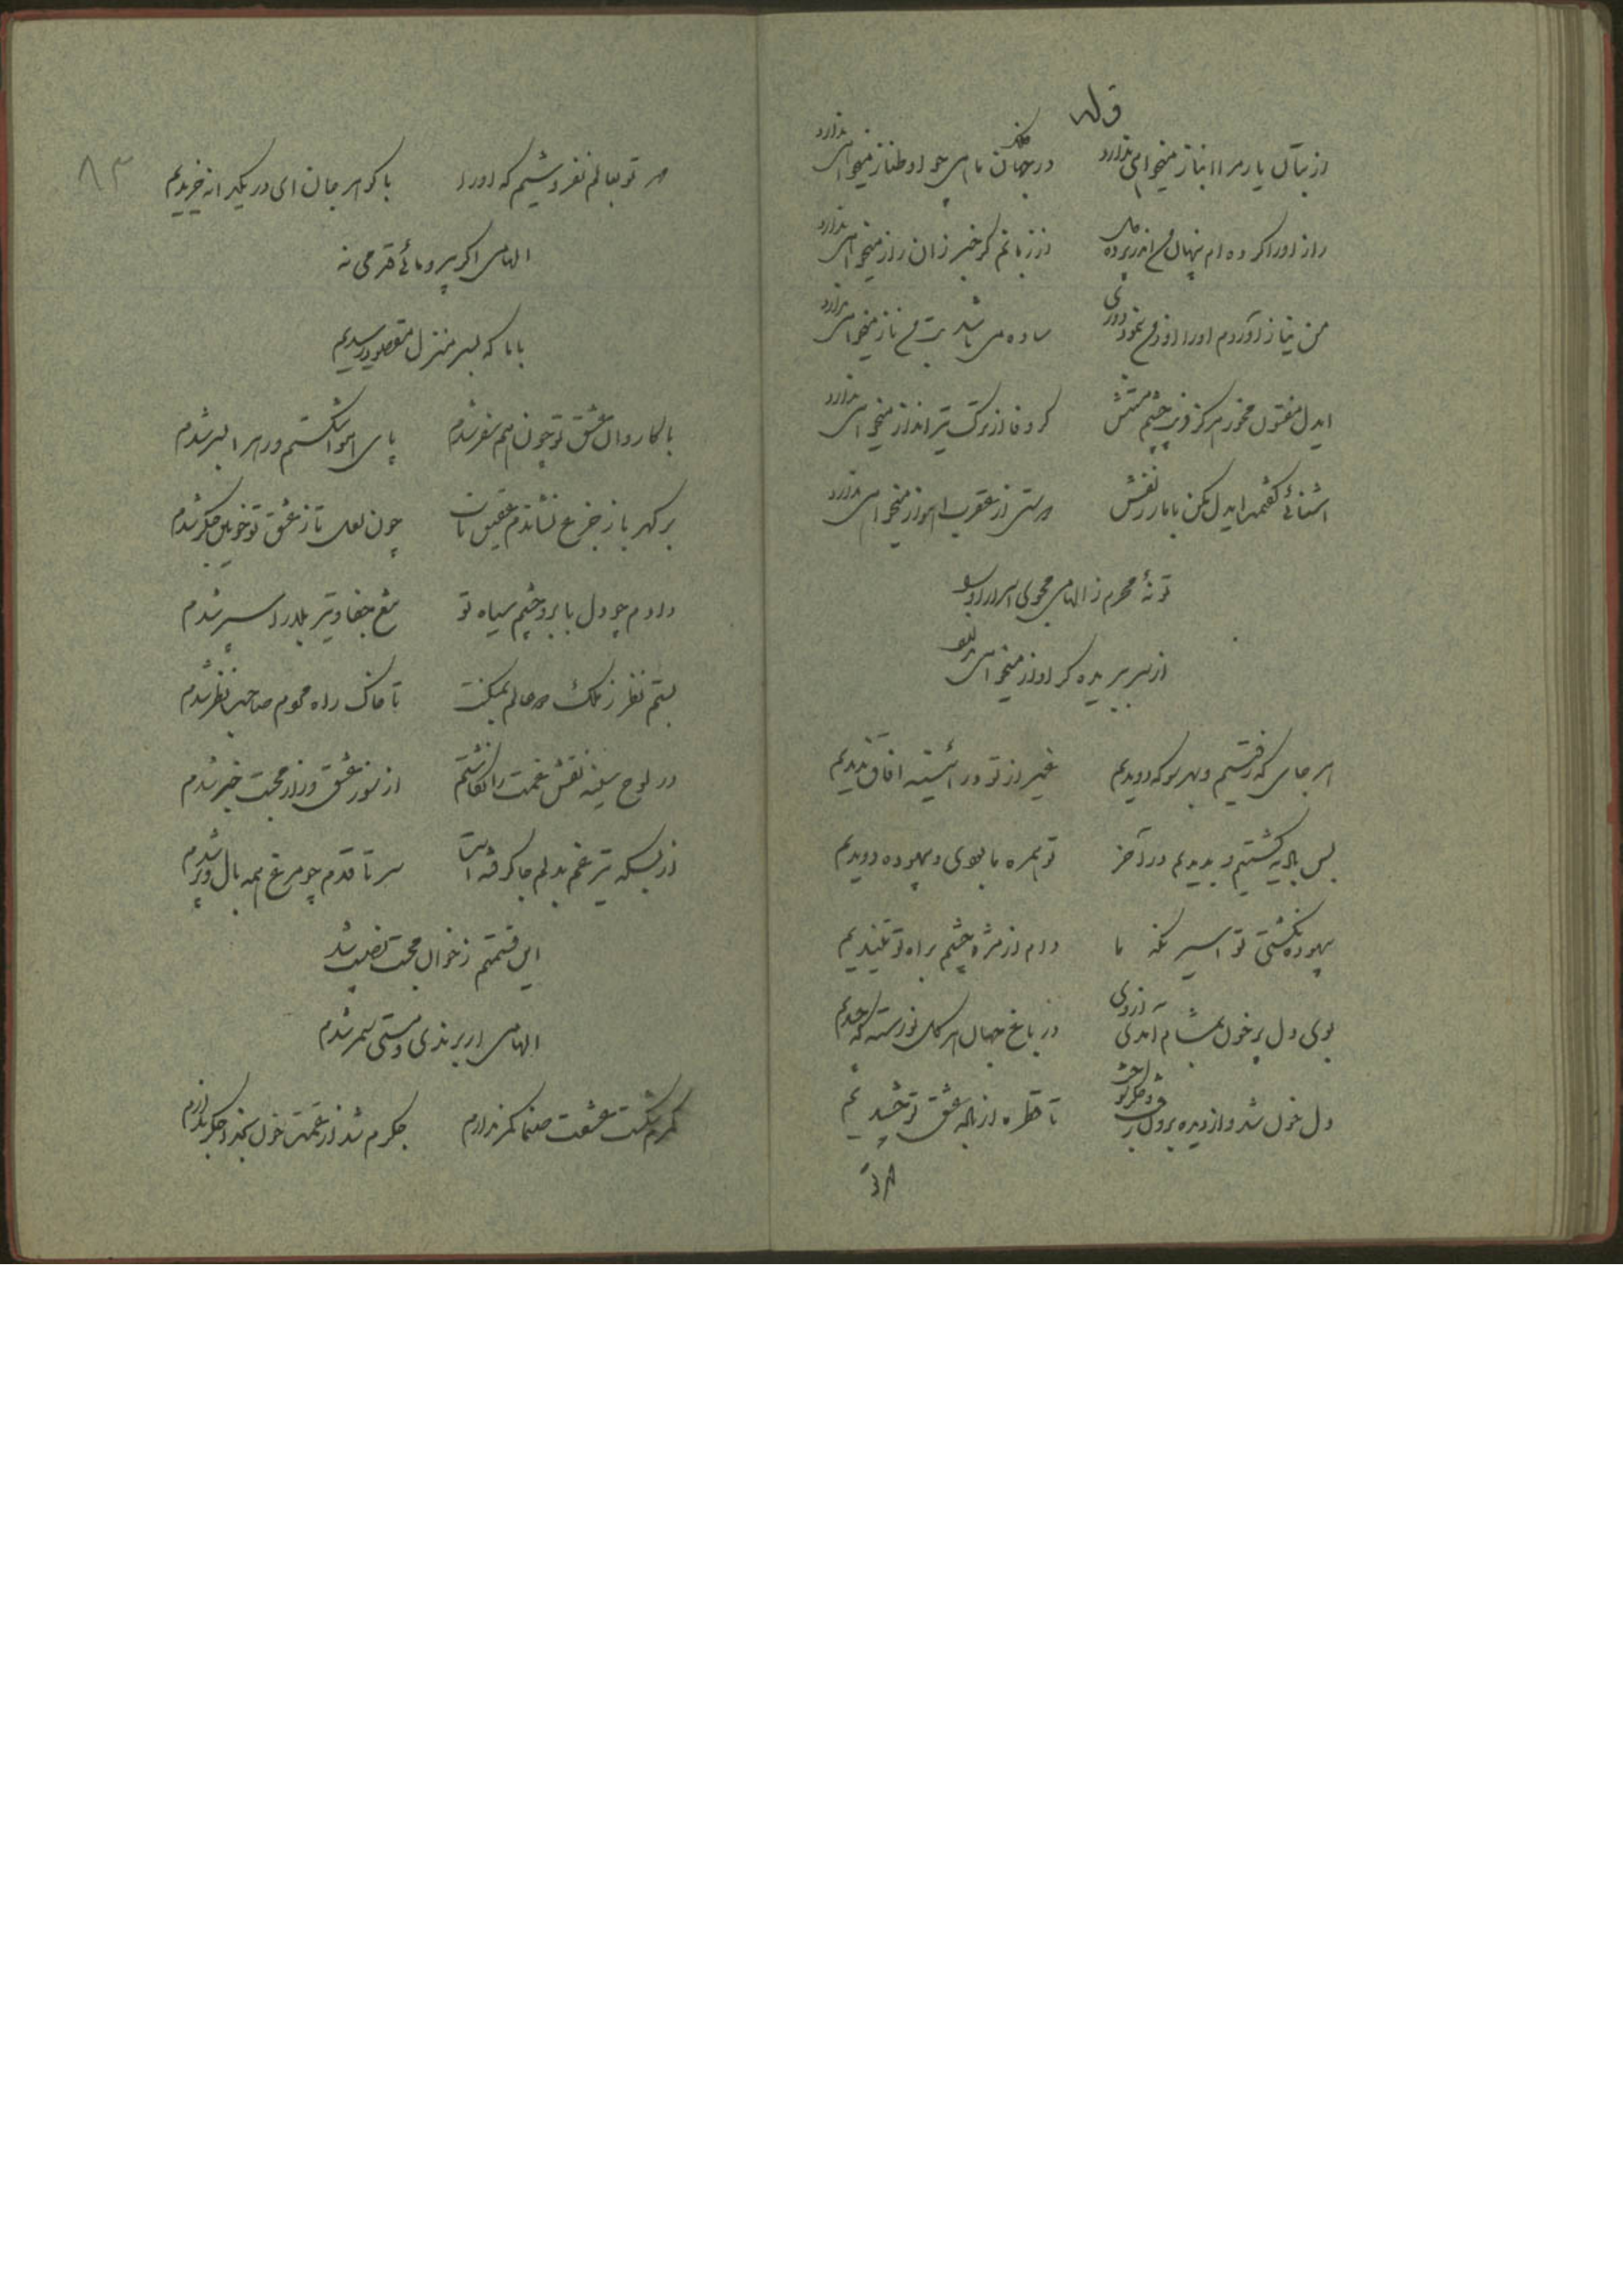 وله
از بتان یار مرا ناز میخواهی ندارد در جهان ماهی چو او طناز میخواهی ندارد
راز او را کرده‌ام پنهان اندر پرده از زبانم کر خبر زان راز میخواهی ندارد
من نیاز آوردم او را او ز من نمود دوری ساده می باشد بت من ناز میخواهی ندارد
ایدل مفتون مخور هرگز فریب چشم مستش کر وفا از ترک تیرانداز میخواهی ندارد
اشنائی کفتمت ایدل مکن با مار زلفش از عقرب اهواز میخواهی ندارد
تو نهٔ محرم ز الهامی مجوی اسرار او
از سر ببریده کر اواز میخواهی
هر جای که رفتیم و بهر سو که دویدیم غیر از تو در آئینه افاق ندیدیم
بس بادیه کشتیم و بدیدیم در آخر تو همره ما بودی و بیهوده دویدیم
بیهوده نکشتی تو اسیر نکه ما دام از مژه و چشم براه تو تنیدیم
بوی دل پر خون بمشام آمدی از وی در باغ جهان هر کل نورسته که چیدیم
دل خون شد و از دیده برون رفت و جکر تا قطره از باده عشق تو چشیدیم
هر دو
۸۳
تو بعالم نفروشیم که او را با کوهر جان ای در یکدانه خریدیم
الهامی اکر پیرو مائی قدمی نه
با ما که بسر منزل مقصود رسیدیم
با کاروان عشق تو چون هم سفر شدم پای هوا شکستم و در راه بسر شدم
پر کهر باز جزع نشاندم عقیق ناب چون لعل تا ز عشق تو خونین جکر شدم
دادم چو دل بابرو و چشم سیاه تو تیغ جفا و تیر بلا را سپر شدم
بستم نظر ز ملک دو عالم بمکنت تا خاک راه صاحب نظر شدم
در لوح سینه نقش غمت را نکاشتم از سوز عشق و راز محبت خبر شدم
از بسکه تیر غم بدلم جا کرفته است سر تا قدم چو مرغ همه بال و پر شدم
این قسمتم ز خوان محبت نصیب شد
الهامی ار برندی و مستی سمر شدم
کمرم شکست عشقت صنما کمر ندارم جکرم شد از غمت خون بخدا جکر ندارم